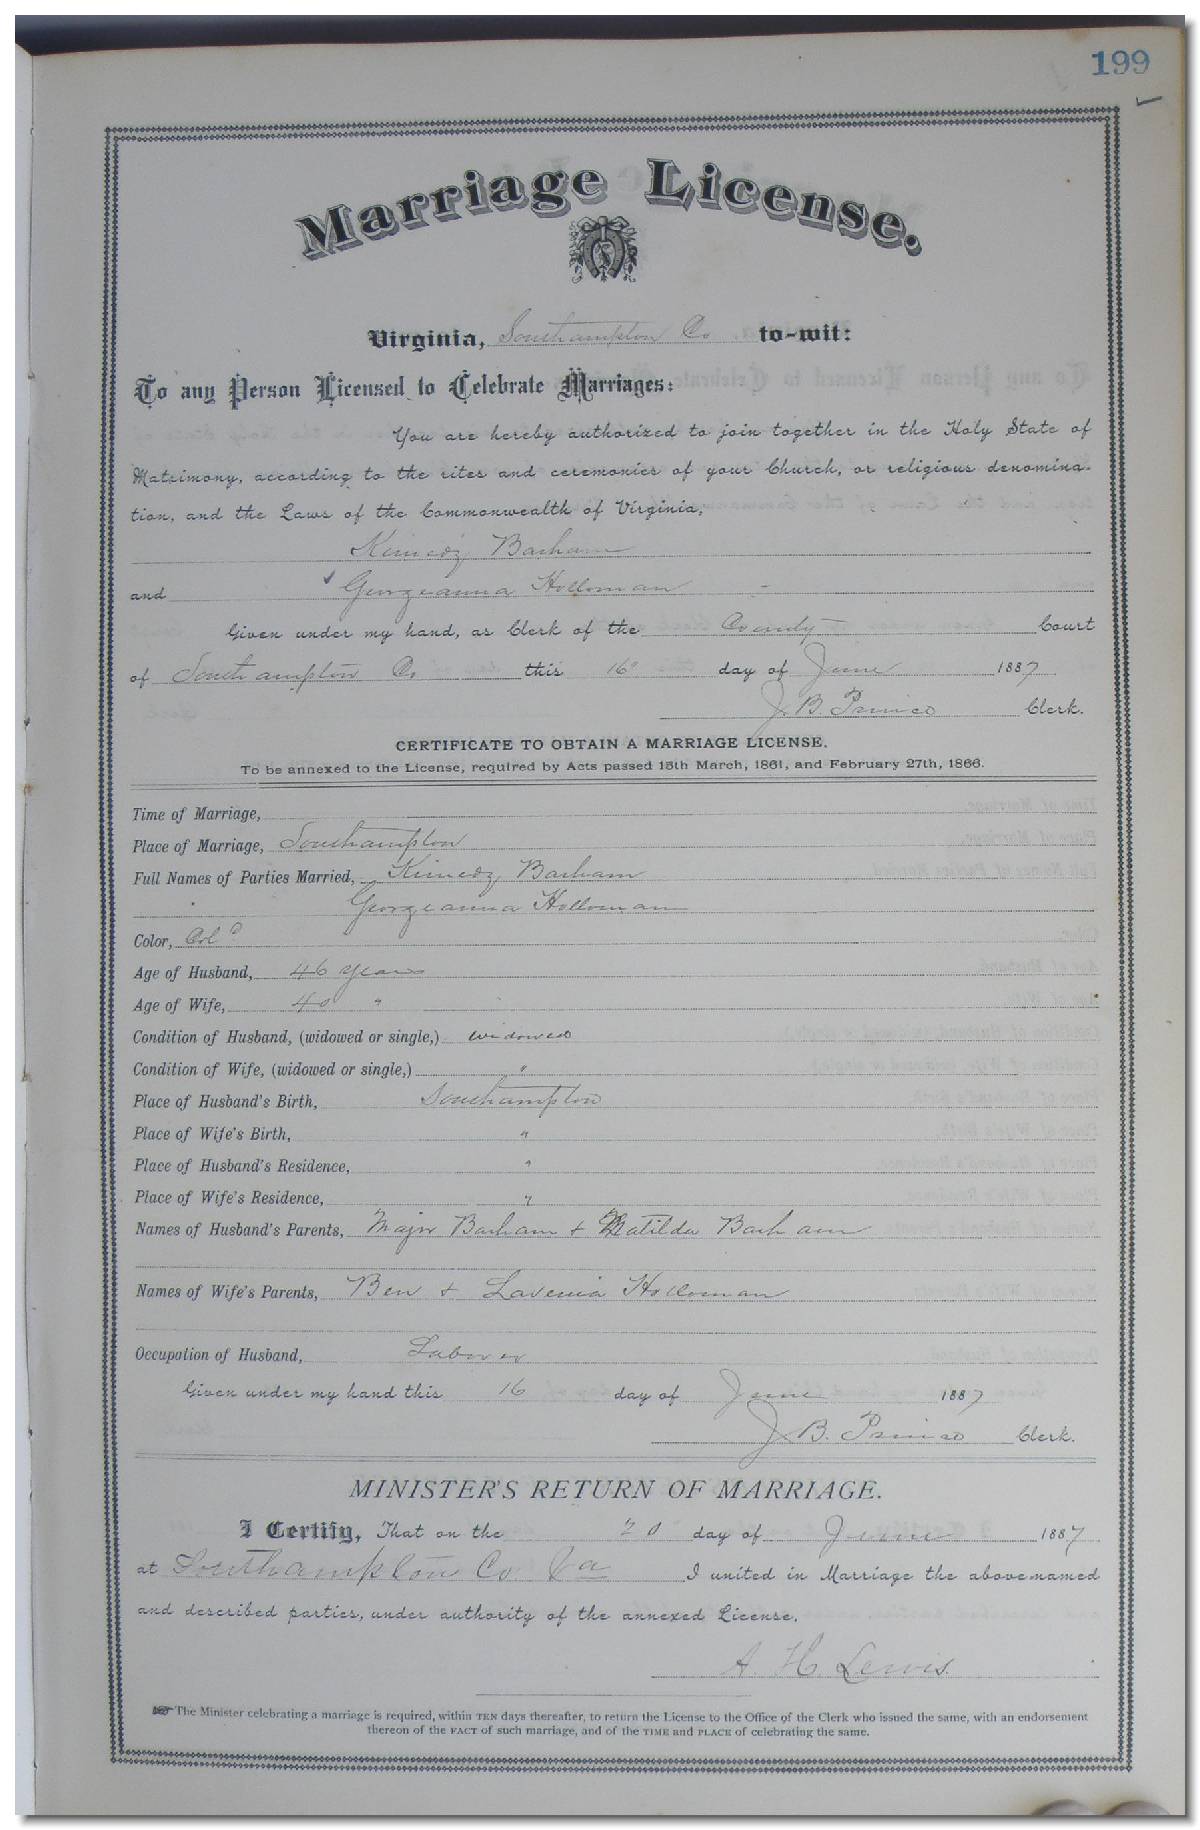 199
Marriage License.
Virginia, Southampton Co to-wit:
To any Person Licensed to Celebrate Marriages:
You are hereby authorized to join together in the Holy State of
Matrimony, according to the rites and ceremonies of your Church, or religious denomina-
tion, and the Laws of the Commonwealth of Virginia,
Barham
and Georgeanna Holloman
Given under my hand, as Clerk of the County Court
of Southampton Co this 16 day of June 1887
J. B. Prince Clerk.
CERTIFICATE TO OBTAIN A MARRIAGE LICENSE.
To be annexed to the License, required by Acts passed 15th March, 1861, and February 27th, 1866.
Time of Marriage,
Place of Marriage, Southampton
Full Names of Parties Married, Barham
Georgeanna Holloman
Color, Cold
Age of Husband, 46 years
Age of Wife, 40 "
Condition of Husband, (widowed or single,) widowed
Condition of Wife, (widowed or single,) "
Place of Husband's Birth, Southampton
Place of Wife's Birth, "
Place of Husband's Residence, "
Place of Wife's Residence, "
Names of Husband's Parents, Major Barham + Matilda Barham
Names of Wife's Parents, Ben + Lavenia Holloman
Occupation of Husband, Laborer
Given under my hand this 16 day of June 1887
J. B. Prince Clerk.
MINISTER'S RETURN OF MARRIAGE.
I Certify, That on the 20 day of June 1887
at Southampton Co Va I united in Marriage the above-named
and described parties, under authority of the annexed License.
A. H. Lewis
The Minister celebrating a marriage is required, within TEN days thereafter, to return the License to the Office of the Clerk who issued the same, with an endorsement
thereon of the FACT of such marriage, and of the TIME and PLACE of celebrating the same.